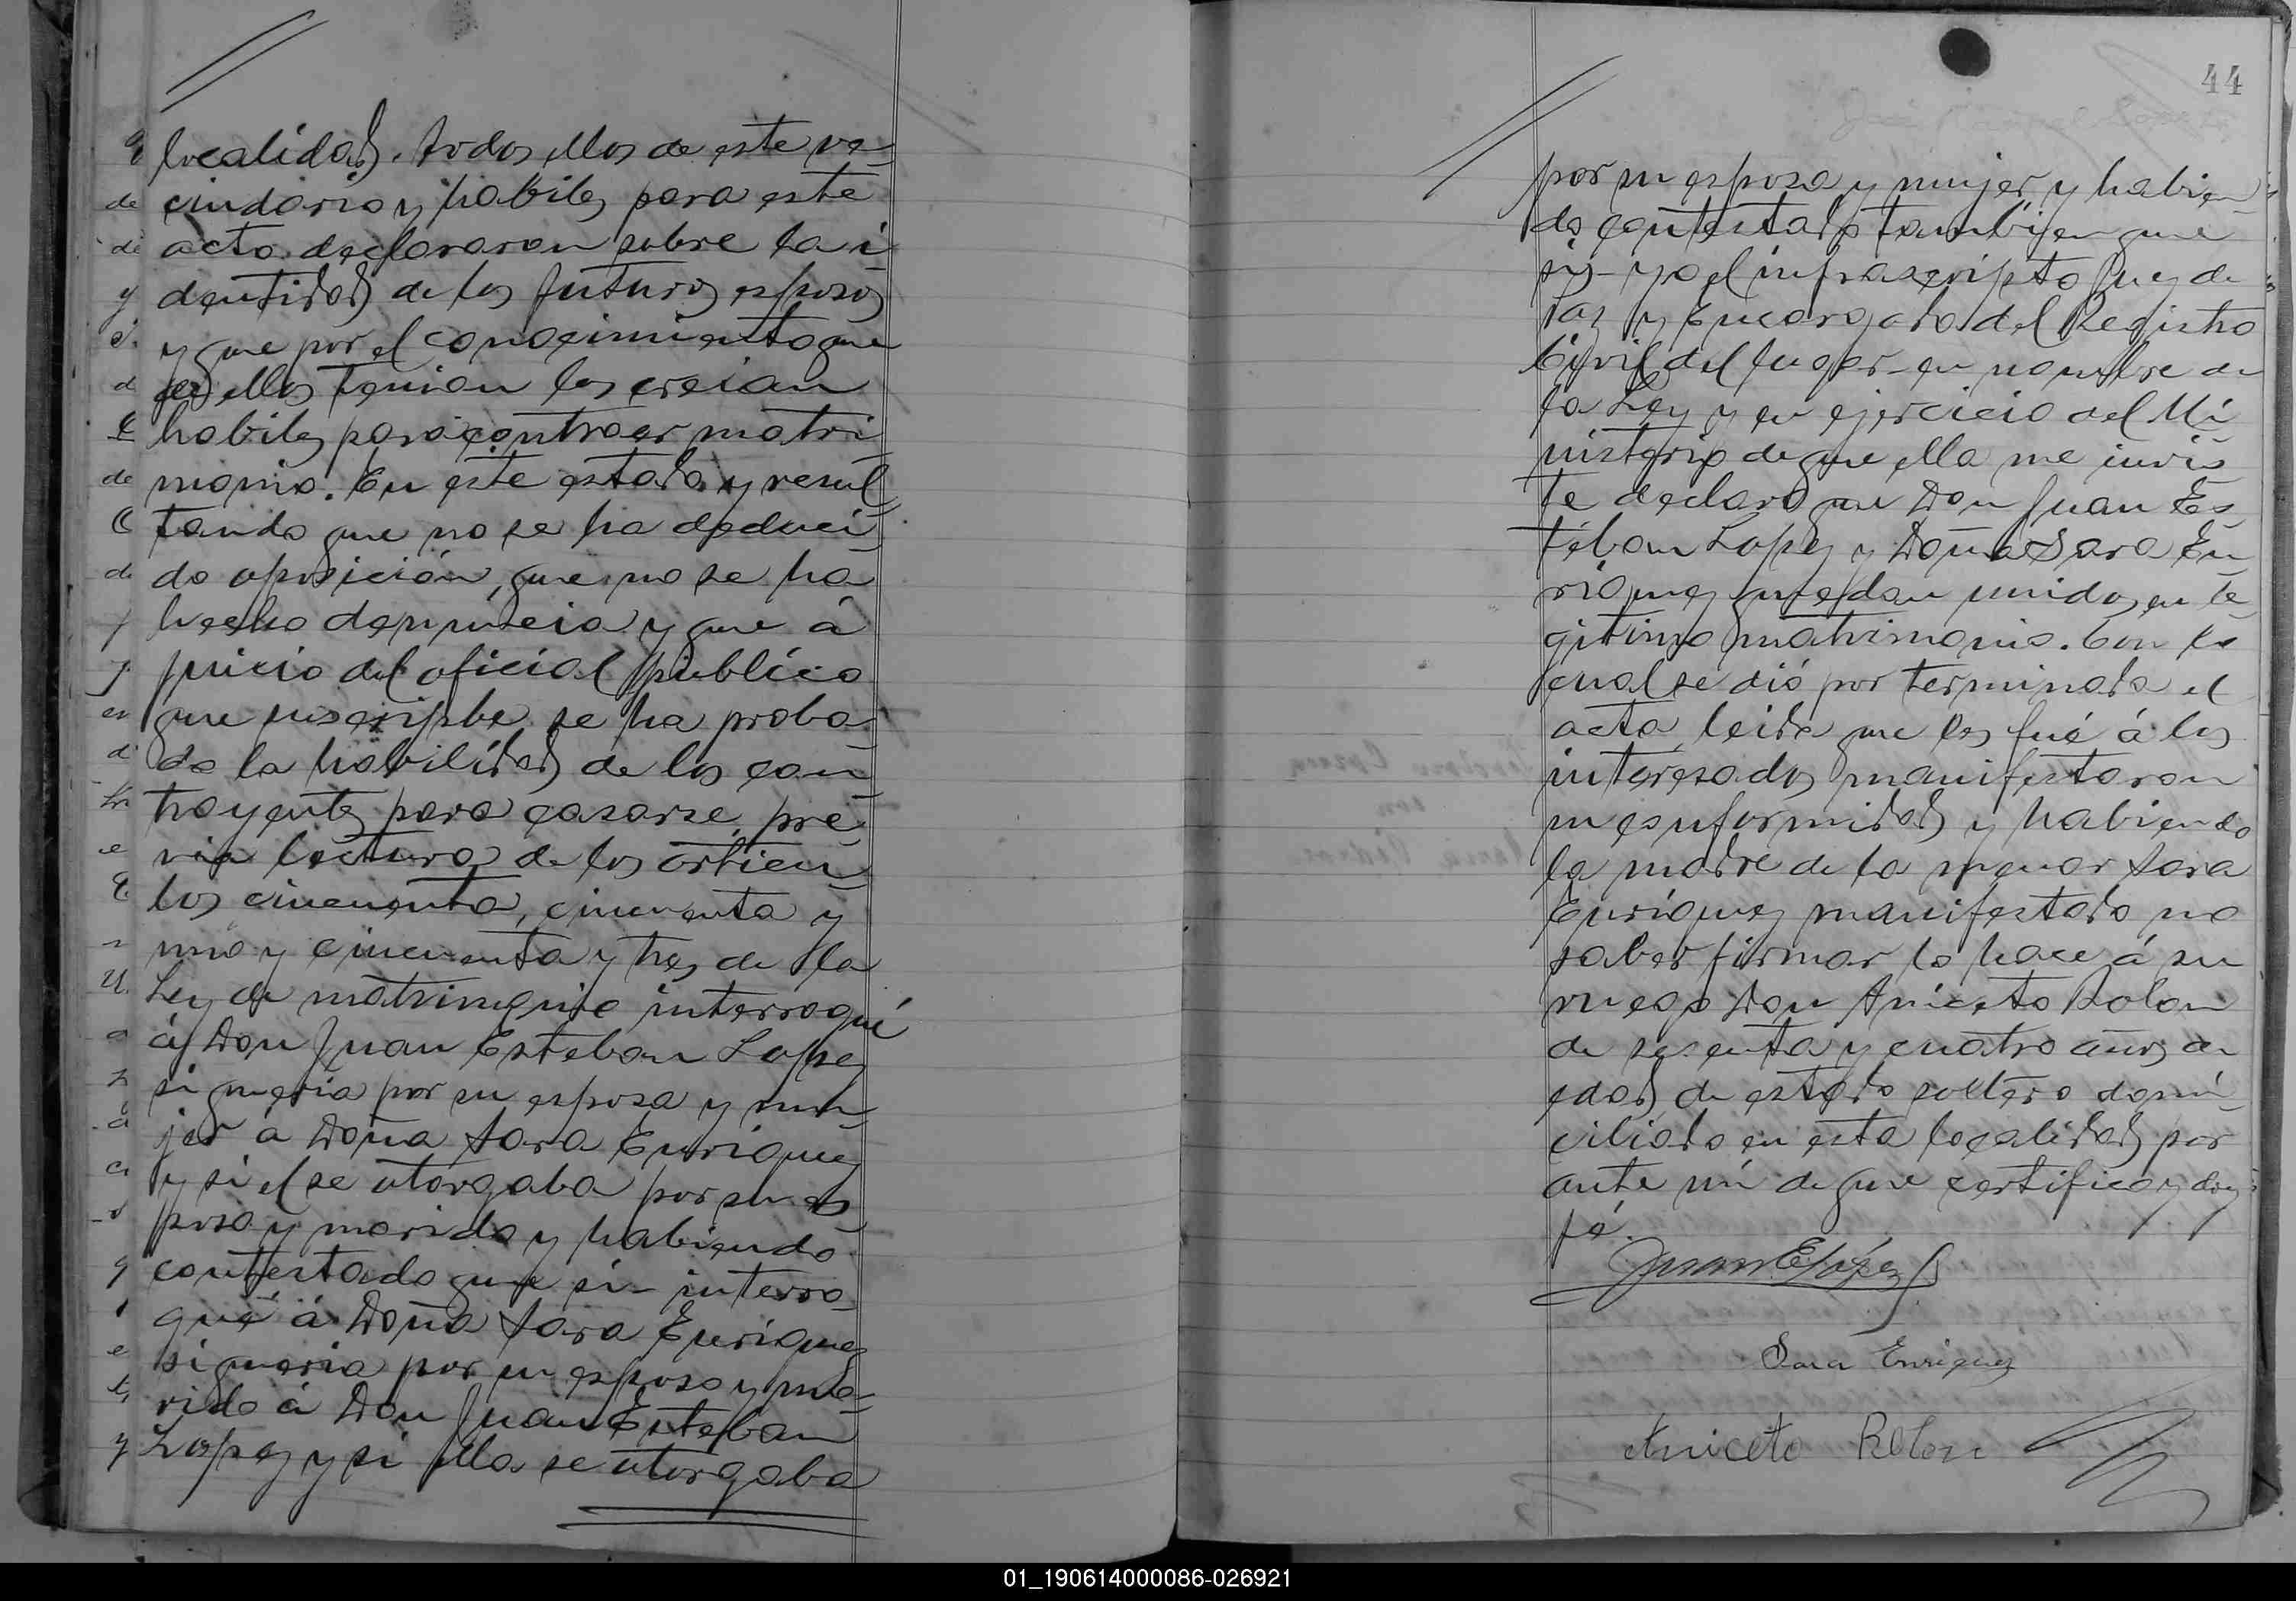 localidad. todos ellos de este ve-
cindario y habiles para este
acto declararon sobre la i-
dentidad de los futuros esposos
y que por el conocimiento que
de ellos tenian los creian
habiles para contraer matri-
monio. En este estado y resul-
tando que no se ha deduci-
do oposición, que no se ha
hecho denuncia y que á
juicio del oficial público
que suscribe se ha proba-
do la habilidad de los con-
trayentes para casarse, pré-
via lectura de los articu-
los cincuenta, cincuenta y
uno y cincuenta y tres de la
Ley de matrimonio interrogué
á Don Juan Esteban Lopez
si queria por su esposa y mu-
jer á Doña Sara Enriquez
y si el se otorgaba por su es-
poso y marido y habiendo
contestado que si- interro-
gué á Doña Sara Enriquez
si queria por su esposo y ma-
rido á Don Juan Esteban
Lopez y si ella se otorgaba
44
por su esposa y mujer y habien-
do contestado tambien que
si- yo el infrascripto Juez de
Paz y Encargado del Registro
Civil del lugar- en nombre de
la Ley y en ejercicio del Mi-
nisterio de que ella me invis-
te declaro que Don Juan Es-
téban Lopez y Doña Sara En-
riquez quedan unidos en le-
gitimo matrimonio. Con lo
cual se dió por terminada el
acta, leida que les fué á los
interesados manifestaron
su conformidad y habiendo
la madre de la menor Sara
Enriquez manifestado no
saber firmar lo hace á su
ruego Don Aniceto Rolon
de sesenta y cuatro años de
edad de estado soltero domi-
ciliado en esta localidad por
ante mi de que certifico y doy
fé.
Juan E López
Sara Enriquez
Aniceto Rolon
01_190614000086-026921